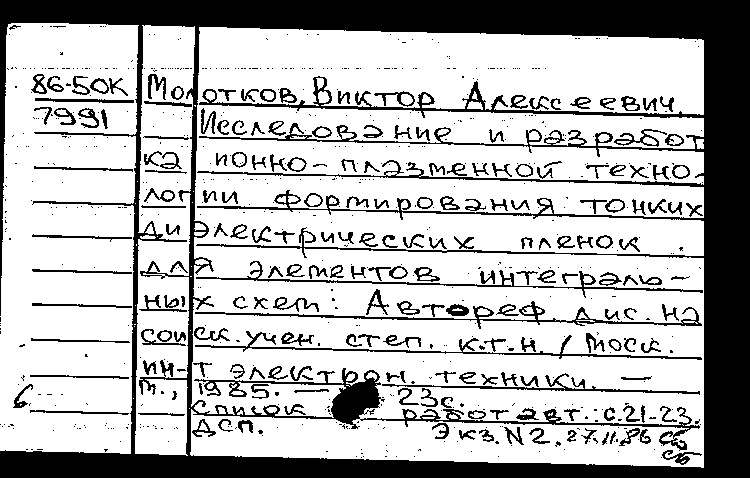 86-50К Молотков, Виктор Алексеевич.
7991 Исследование и разработ
ка ионно-плазменной техно-
логии формирования тонких
диэлектрических пленок
для элементов интеграль-
ных схем: Автореф. дис. на
соиск. учен. степ. к.т.н. / Моск.
ин-т электрон. техники. —
М., 1985. — 23с.
6 Список работ авт.: с.21-23.
ДСП. Экз. N2. 27.11.86